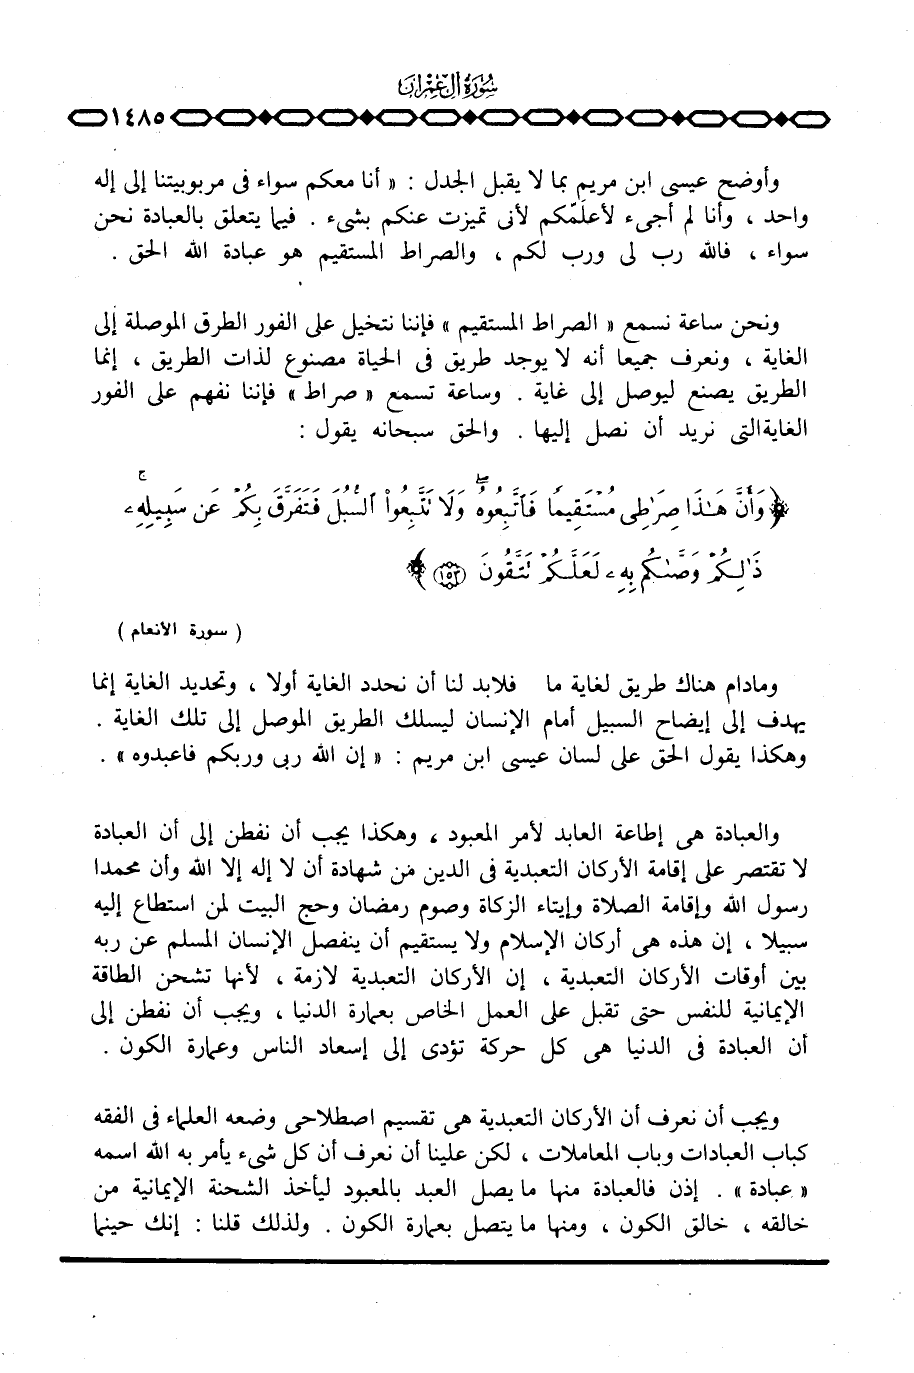 سُورَةُ آلِ عِمْرَانَ
١٤٨٥
وأوضح عيسى ابن مريم بما لا يقبل الجدل : « أنا معكم سواء فى مربوبيتنا إلى إله
واحد ، وأنا لم أجىء لأعلمّكم لأنى تميزت عنكم بشىء . فيما يتعلق بالعبادة نحن
سواء ، فالله رب لى ورب لكم ، والصراط المستقيم هو عبادة الله الحق .
ونحن ساعة نسمع « الصراط المستقيم » فإننا نتخيل على الفور الطرق الموصلة إلى
الغاية ، ونعرف جميعا أنه لا يوجد طريق فى الحياة مصنوع لذات الطريق ، إنما
الطريق يصنع ليوصل إلى غاية . وساعة تسمع « صراط » فإننا نفهم على الفور
الغايةالتى نريد أن نصل إليها . والحق سبحانه يقول :
﴿ وَأَنَّ هَـٰذَا صِرَٰطِى مُسْتَقِيمًا فَٱتَّبِعُوهُ ۖ وَلَا تَتَّبِعُوا۟ ٱلسُّبُلَ فَتَفَرَّقَ بِكُمْ عَن سَبِيلِهِۦ ۚ
ذَٰلِكُمْ وَصَّىٰكُم بِهِۦ لَعَلَّكُمْ تَتَّقُونَ ١٥٣ ﴾
( سورة الأنعام )
ومادام هناك طريق لغاية ما فلابد لنا أن نحدد الغاية أولا ، وتحديد الغاية إنما
يهدف إلى إيضاح السبيل أمام الإنسان ليسلك الطريق الموصل إلى تلك الغاية .
وهكذا يقول الحق على لسان عيسى ابن مريم : « إن الله ربى وربكم فاعبدوه » .
والعبادة هى إطاعة العابد لأمر المعبود ، وهكذا يجب أن نفطن إلى أن العبادة
لا تقتصر على إقامة الأركان التعبدية فى الدين من شهادة أن لا إله إلا الله وأن محمدا
رسول الله وإقامة الصلاة وإيتاء الزكاة وصوم رمضان وحج البيت لمن استطاع إليه
سبيلا ، إن هذه هى أركان الإسلام ولا يستقيم أن ينفصل الإنسان المسلم عن ربه
بين أوقات الأركان التعبدية ، إن الأركان التعبدية لازمة ، لأنها تشحن الطاقة
الإيمانية للنفس حتى تقبل على العمل الخاص بعمارة الدنيا ، ويجب أن نفطن إلى
أن العبادة فى الدنيا هى كل حركة تؤدى إلى إسعاد الناس وعمارة الكون .
ويجب أن نعرف أن الأركان التعبدية هى تقسيم اصطلاحى وضعه العلماء فى الفقه
كباب العبادات وباب المعاملات ، لكن علينا أن نعرف أن كل شىء يأمر به الله اسمه
« عبادة » . إذن فالعبادة منها ما يصل العبد بالمعبود ليأخذ الشحنة الإيمانية من
خالقه ، خالق الكون ، ومنها ما يتصل بعمارة الكون . ولذلك قلنا : إنك حينما